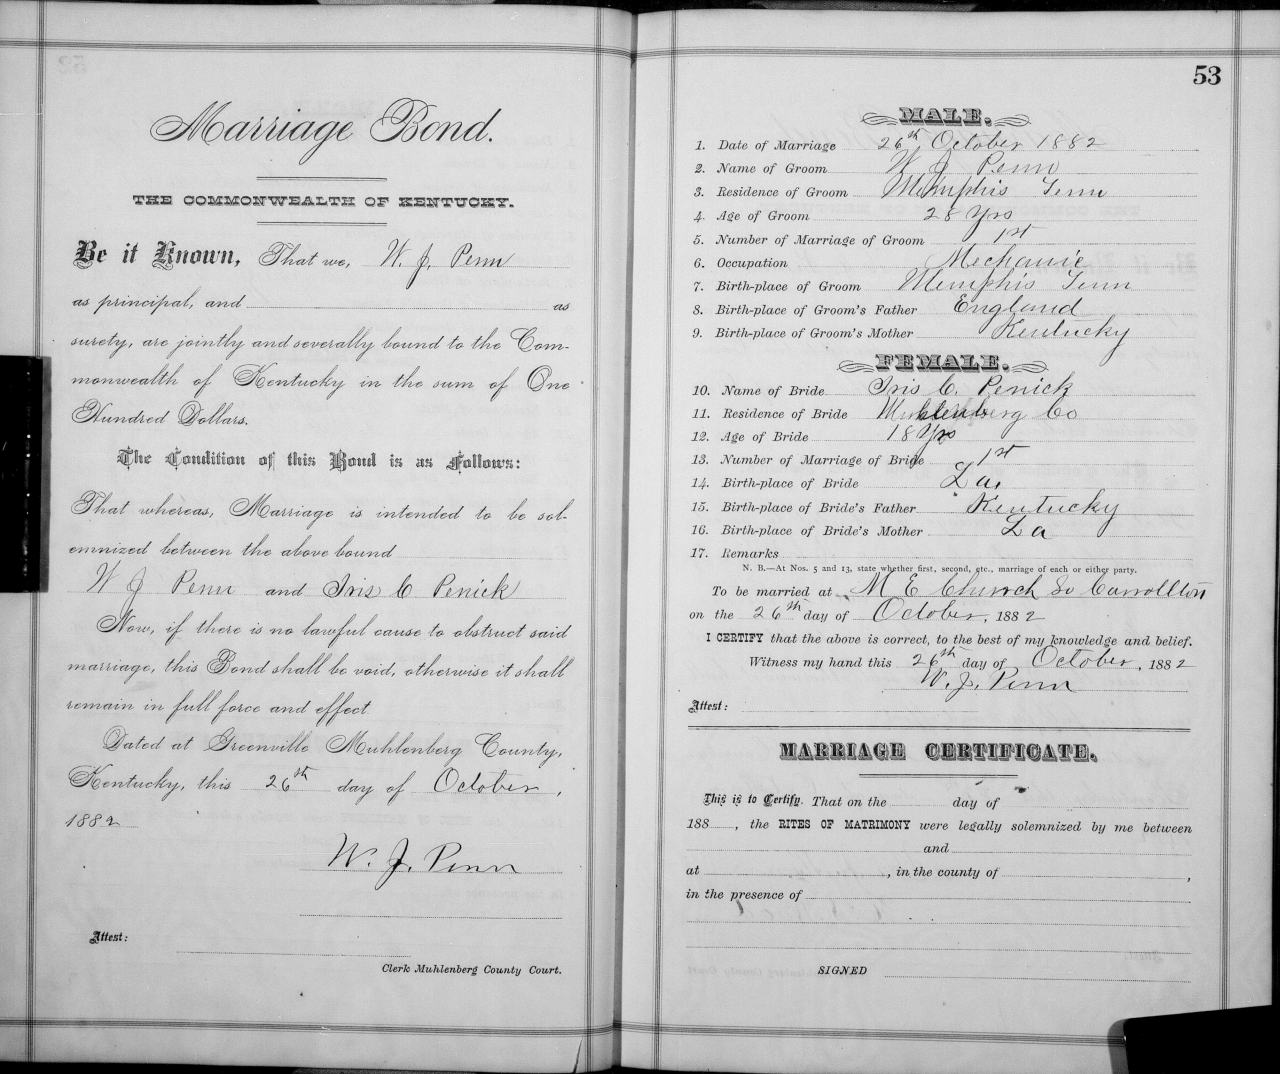 Marriage Bond.
THE COMMONWEALTH OF KENTUCKY.
Be it Known, That we, W. J. Penn
as principal, and as
surety, are jointly and severally bound to the Com-
monwealth of Kentucky in the sum of One
Hundred Dollars.
The Condition of this Bond is as Follows:
That whereas, Marriage is intended to be sol-
emnized between the above bound
W J Penn and Iris C Penick
Now, if there is no lawful cause to obstruct said
marriage, this Bond shall be void, otherwise it shall
remain in full force and effect
Dated at Greenville Muhlenberg County,
Kentucky, this 26th day of October,
1882
W. J. Penn
Attest:
Clerk Muhlenberg County Court.
53
MALE.
1. Date of Marriage 26th October 1882
2. Name of Groom W J Penn
3. Residence of Groom Memphis Tenn
4. Age of Groom 28 Yrs
5. Number of Marriage of Groom 1st
6. Occupation Mechanic
7. Birth-place of Groom Memphis Tenn
8. Birth-place of Groom's Father England
9. Birth-place of Groom's Mother Kentucky
FEMALE.
10. Name of Bride Iris C. Penick
11. Residence of Bride Muhlenberg Co
12. Age of Bride 18 Yrs
13. Number of Marriage of Bride 1st
14. Birth-place of Bride La.
15. Birth-place of Bride's Father Kentucky
16. Birth-place of Bride's Mother La
17. Remarks
N. B.—At Nos. 5 and 13, state whether first, second, etc., marriage of each or either party.
To be married at M E Church So Carrollton
on the 26th day of October, 1882
I CERTIFY that the above is correct, to the best of my knowledge and belief.
Witness my hand this 26th day of October, 1882
W. J. Penn
Attest:
MARRIAGE CERTIFICATE.
This is to Certify. That on the day of
188 , the RITES OF MATRIMONY were legally solemnized by me between
and
at , in the county of ,
in the presence of
SIGNED